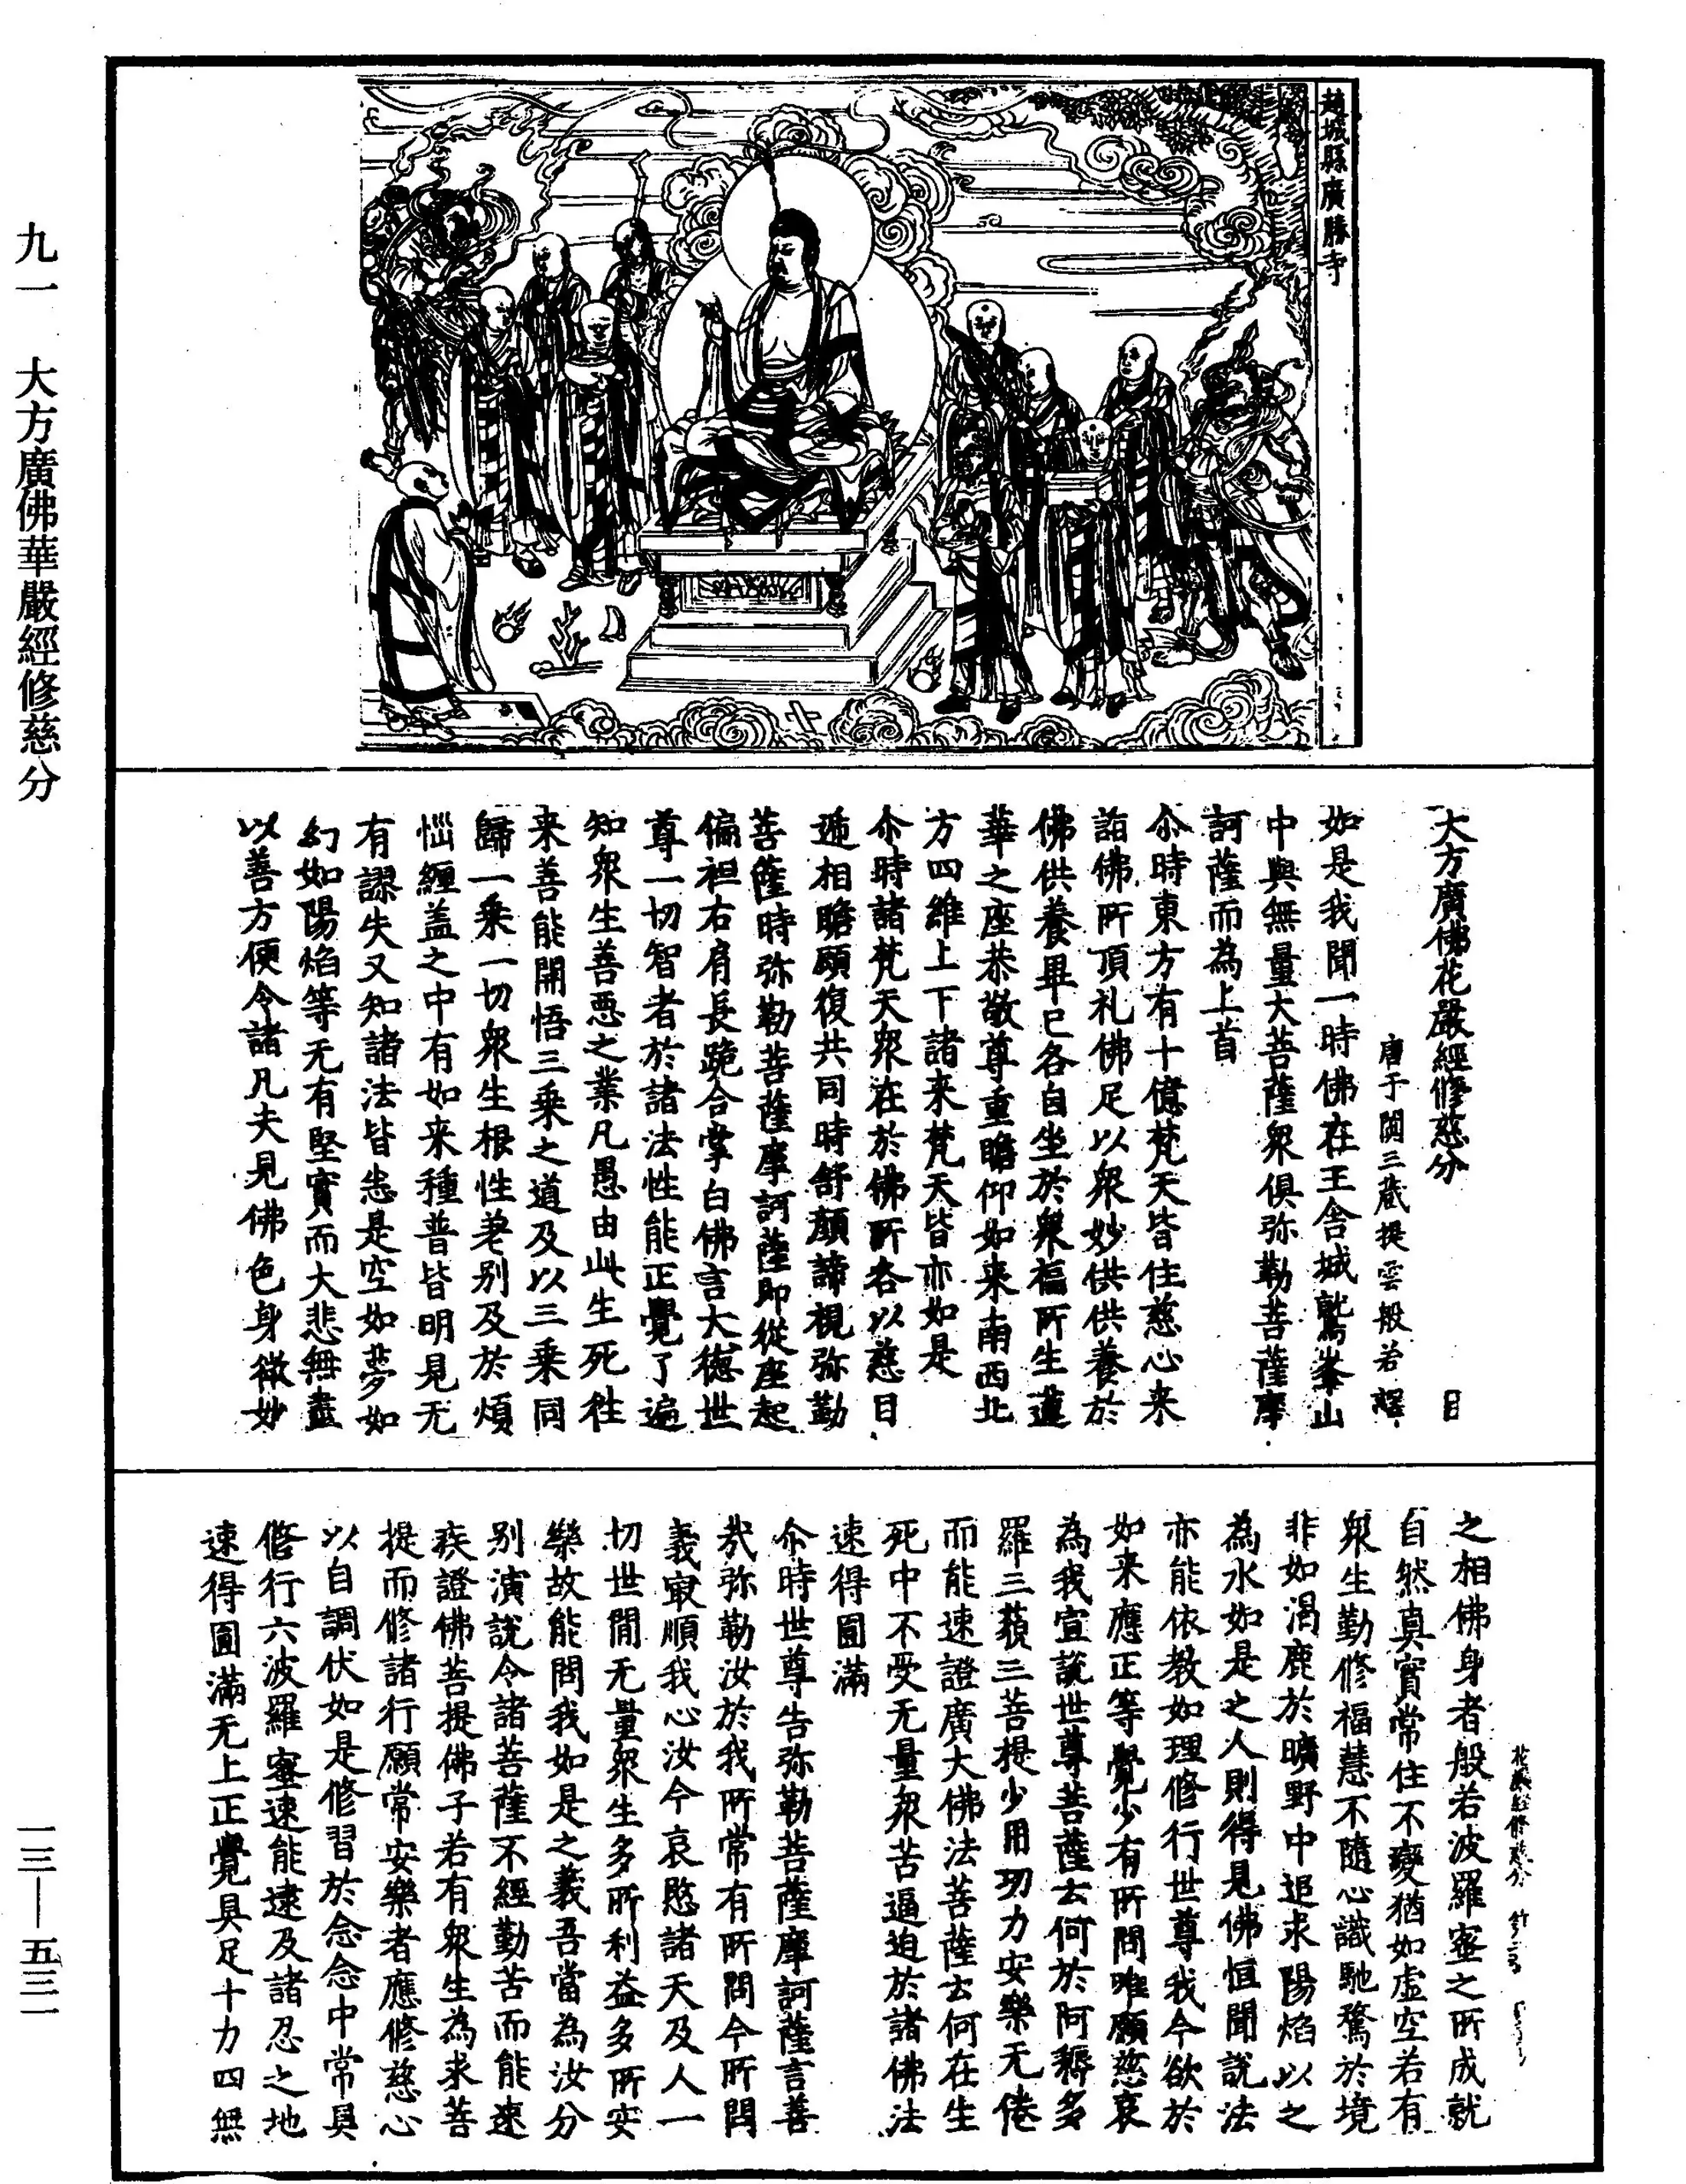 九一　大方廣佛華嚴經修慈分
趙城縣廣勝寺
大方廣佛花嚴經修慈分　目
唐于闐三藏提雲般若譯
如是我聞一時佛在王舍城鷲峯山
中與無量大菩薩衆俱弥勒菩薩摩
訶薩而為上首
尒時東方有十億梵天皆住慈心来
詣佛所頂礼佛足以衆妙供供養於
佛供養畢已各自坐於衆福所生蓮
華之座恭敬尊重瞻仰如来南西北
方四維上下諸来梵天皆亦如是
尒時諸梵天衆在於佛所各以慈目
遞相瞻顧復共同時舒顏諦視弥勒
菩薩時弥勒菩薩摩訶薩即從座起
偏袒右肩長跪合掌白佛言大德世
尊一切智者於諸法性能正覺了遍
知衆生善惡之業凡愚由此生死往
来善能開悟三乗之道及以三乗同
歸一乗一切衆生根性差别及於煩
惱纏盖之中有如来種普皆明見无
有謬失又知諸法皆悉是空如夢如
幻如陽焰等无有堅實而大悲無盡
以善方便令諸凡夫見佛色身微妙
之相佛身者般若波羅蜜之所成就
自然真實常住不變猶如虚空若有
衆生勤修福慧不隨心識馳騖於境
非如渴鹿於曠野中追求陽焰以之
為水如是之人則得見佛恒聞說法
亦能依教如理修行世尊我今欲於
如来應正等覺少有所問唯願慈哀
為我宣說世尊菩薩云何於阿耨多
羅三藐三菩提少用功力安樂无倦
而能速證廣大佛法菩薩云何在生
死中不受无量衆苦逼迫於諸佛法
速得圓滿
尒時世尊告弥勒菩薩摩訶薩言善
哉弥勒汝於我所常有所問今所問
義寂順我心汝今哀愍諸天及人一
切世間无量衆生多所利益多所安
樂故能問我如是之義吾當為汝分
别演說令諸菩薩不經勤苦而能速
疾證佛菩提佛子若有衆生為求菩
提而修諸行願常安樂者應修慈心
以自調伏如是修習於念念中常具
修行六波羅蜜速能逮及諸忍之地
速得圓滿无上正覺具足十力四無
花嚴經修慈分
一三—五三一